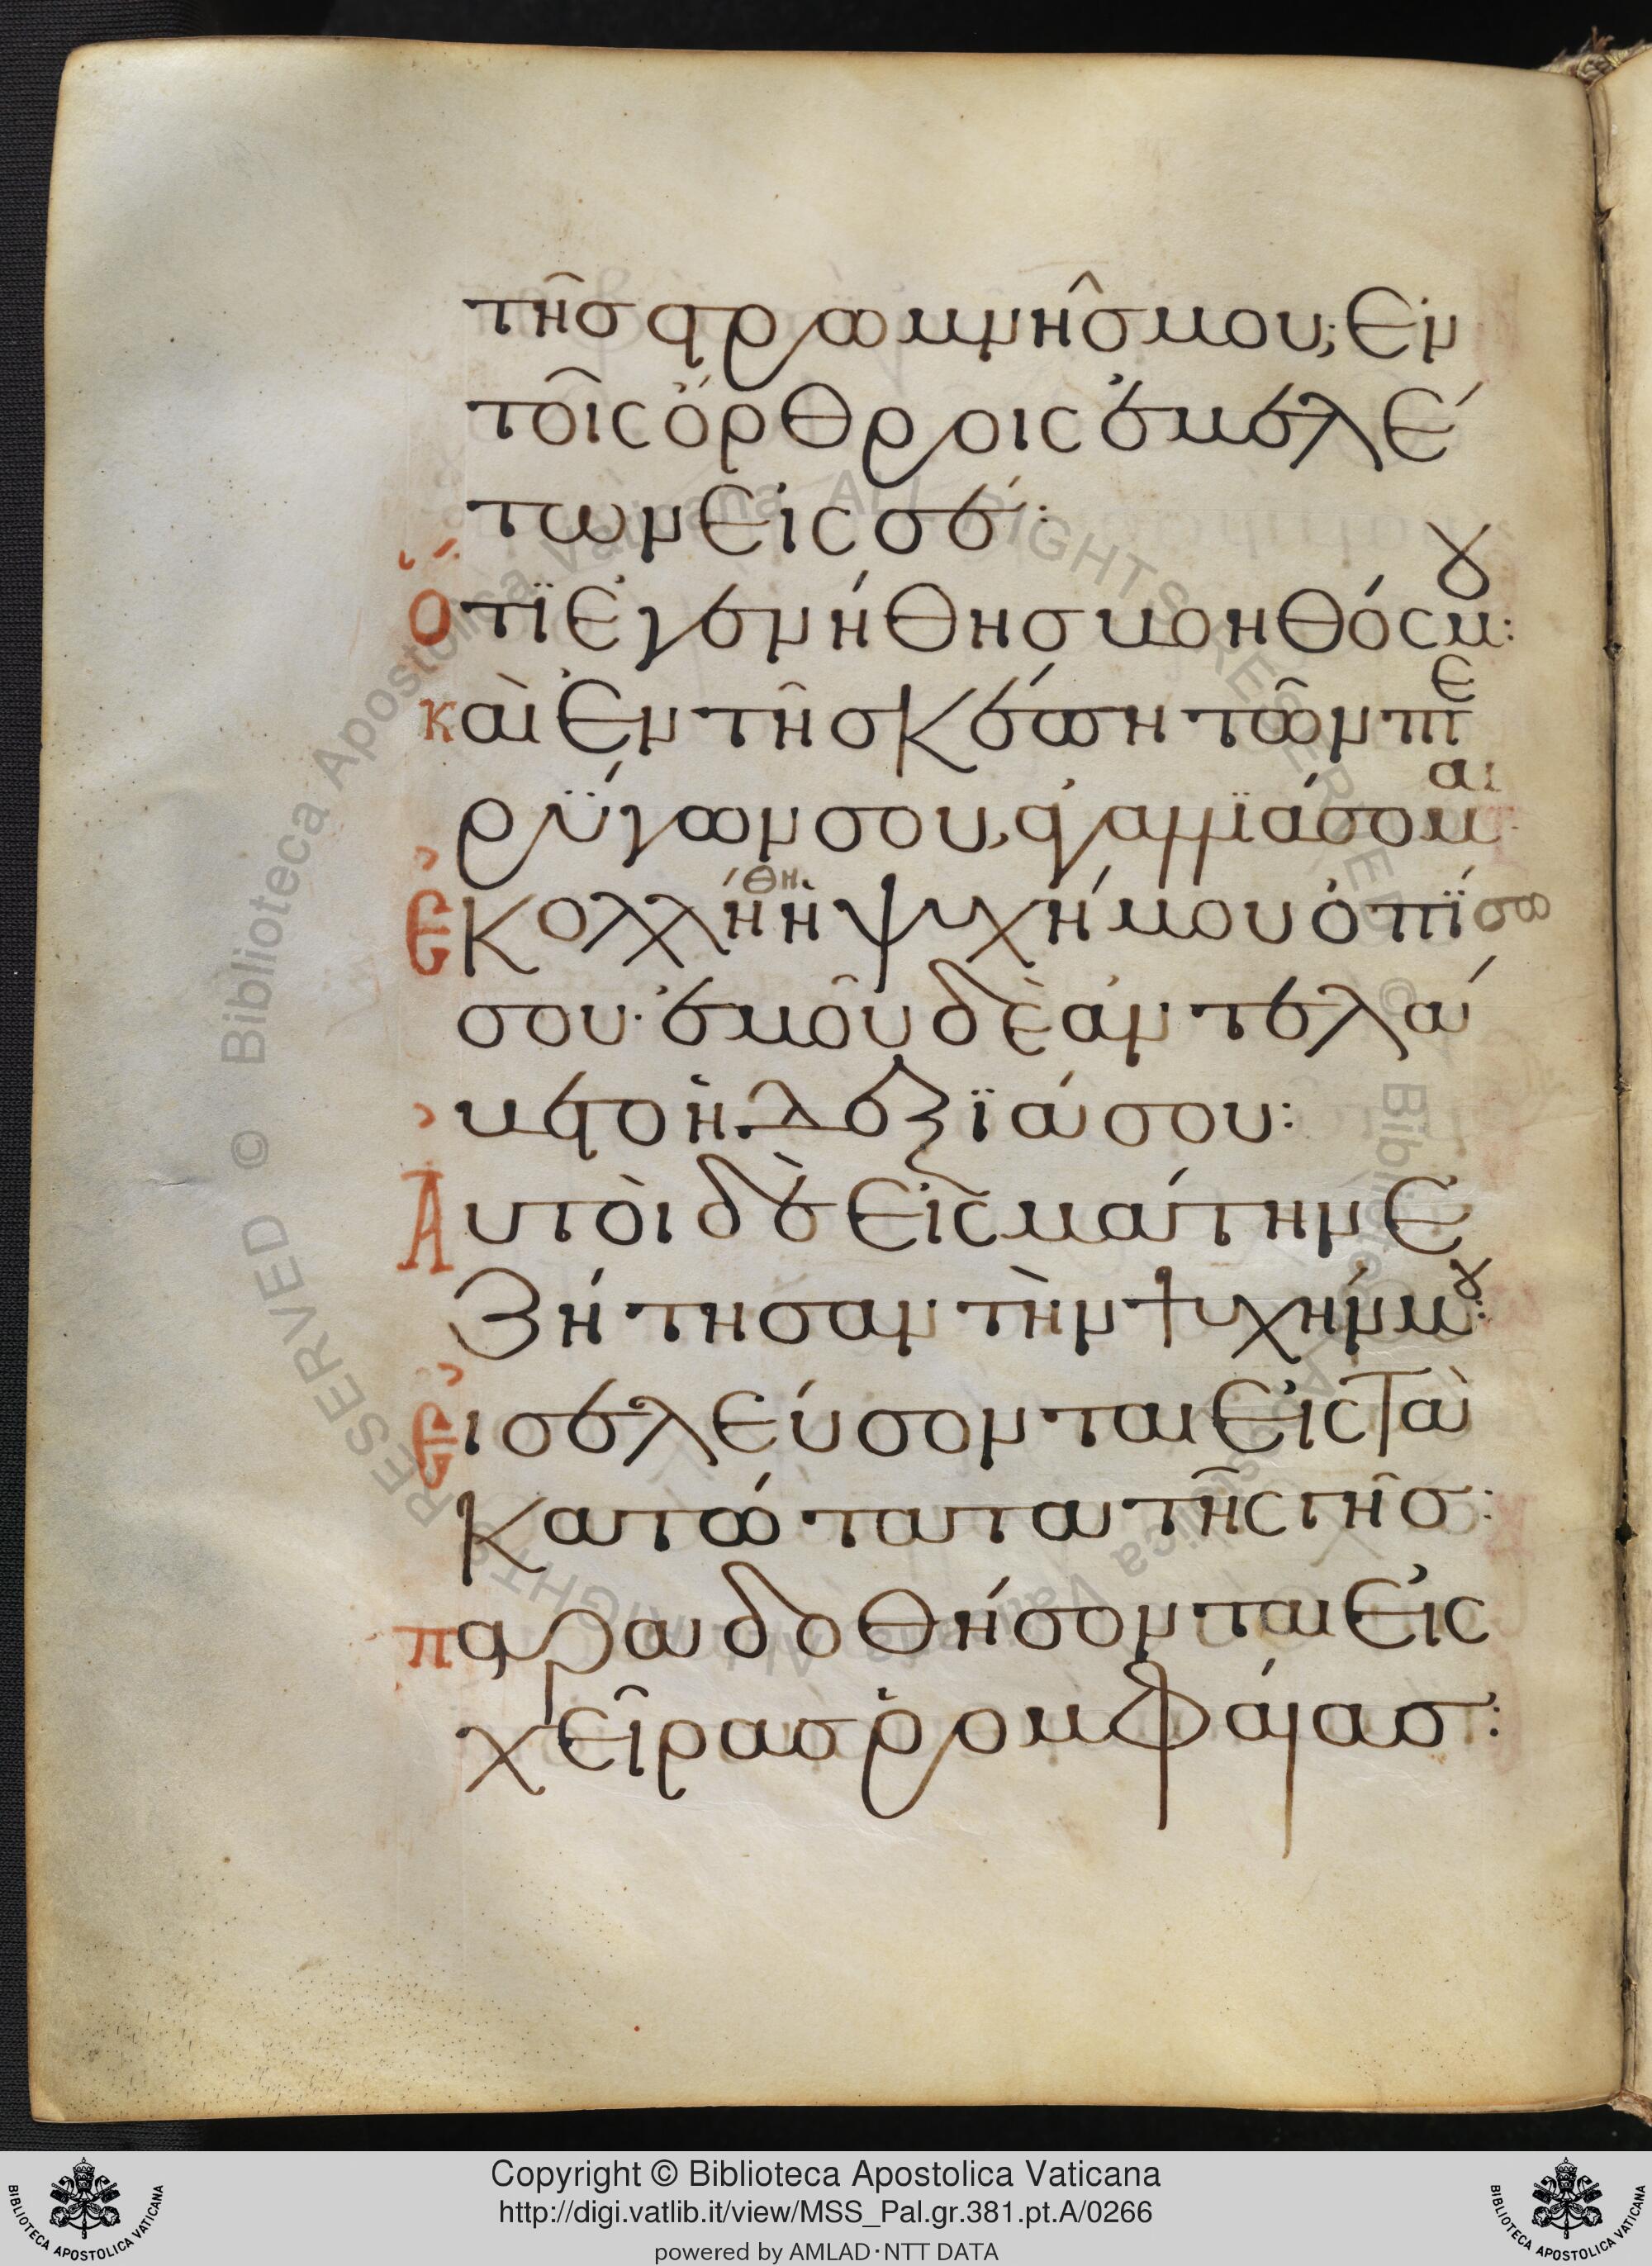 τῆς στρωμνῆς μου; Ἐν
τοῖς ὄρθροις ἐμελέ
των εἰς σέ:
Ὅτϊ ἐγενήθης βοηθός μου:
καὶ ἐν τῆ σκέπη τῶν πτε
ρΰγων σου, ἀγαλλϊάσομαι
Ἐκολλήθη ἡ ψυχή μου ὀπϊσω
σου· ἐμοῦ δὲ ἀντελά
βετο ἡ δεξϊά σου:
Αυτοὶ δὲ εἰς μάτην ἐ
ζήτησαν τὴν ψυχήν μου:
Εἰσελεύσονται εἰς τὰ
κατώτατα τῆς γῆς:
παραδοθήσονται εἰς
χεῖρας ῥομφαίας:
Copyright © Biblioteca Apostolica Vaticana
http://digi.vatlib.it/view/MSS_Pal.gr.381.pt.A/0266
powered by AMLAD·NTT DATA
BIBLIOTECA APOSTOLICA VATICANA
BIBLIOTECA APOSTOLICA VATICANA